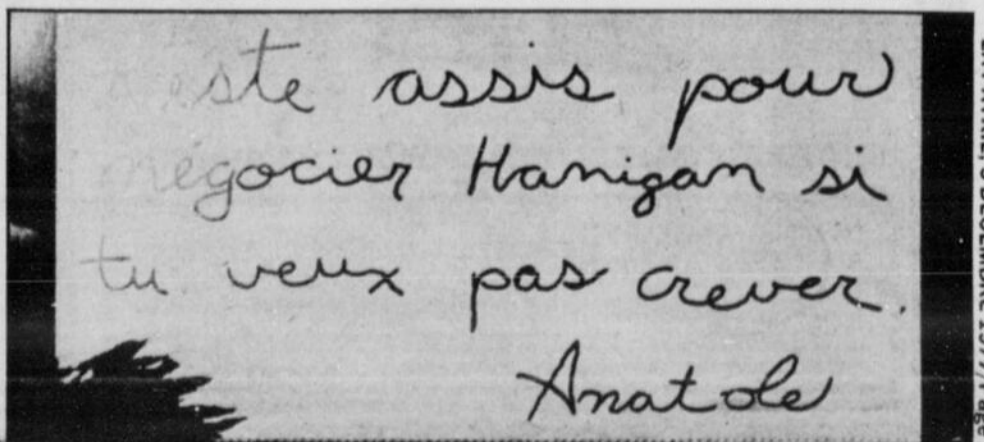 este assis pour
négocier Hanigan si
tu veux pas crever.
Anatole